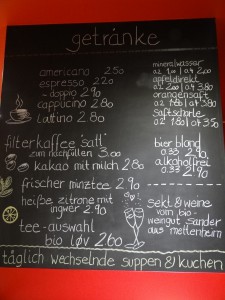 getränke
americano 2.50
espresso 2.20
- doppio 2.90
cappucino 2.80
lattino 2.80
filterkaffee "satt"
zum nachfüllen 3.00
kakao mit milch 2.80
frischer minztee 2.90
heiße zitrone mit
ingwer 2.90
tee-auswahl
bio løv 2.60
mineralwasser
0.2 1.00 | 0.4 2.00
apfeldirekt
0.2 | 0.4 3.80
orangensaft
0.2 1.80 | 0.4
saftschorle
0.2 1.80 | 0.4 3.50
bier blond
0.33 2.90
alkoholfrei
0.33 2.90
sekt & weine
vom bio-
weingut sander
aus "mettenheim"
täglich wechselnde suppen & kuchen